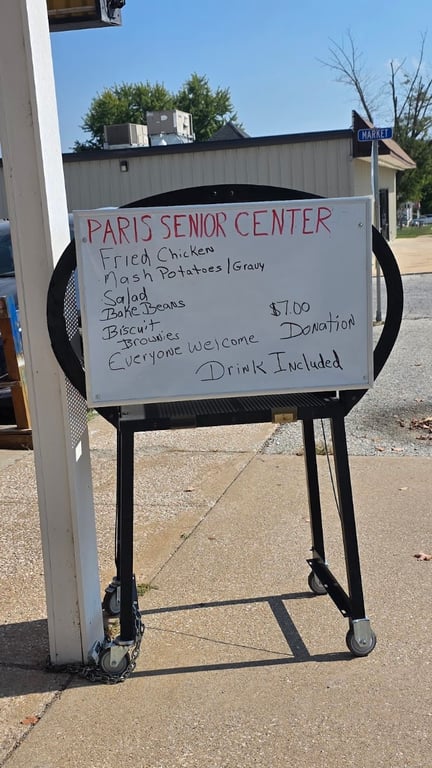 MARKET
PARIS SENIOR CENTER
Fried Chicken
Mash Potatoes/Gravy
Salad
Bake Beans
Biscuit $7.00
Brownies Donation
Everyone Welcome
Drink Included